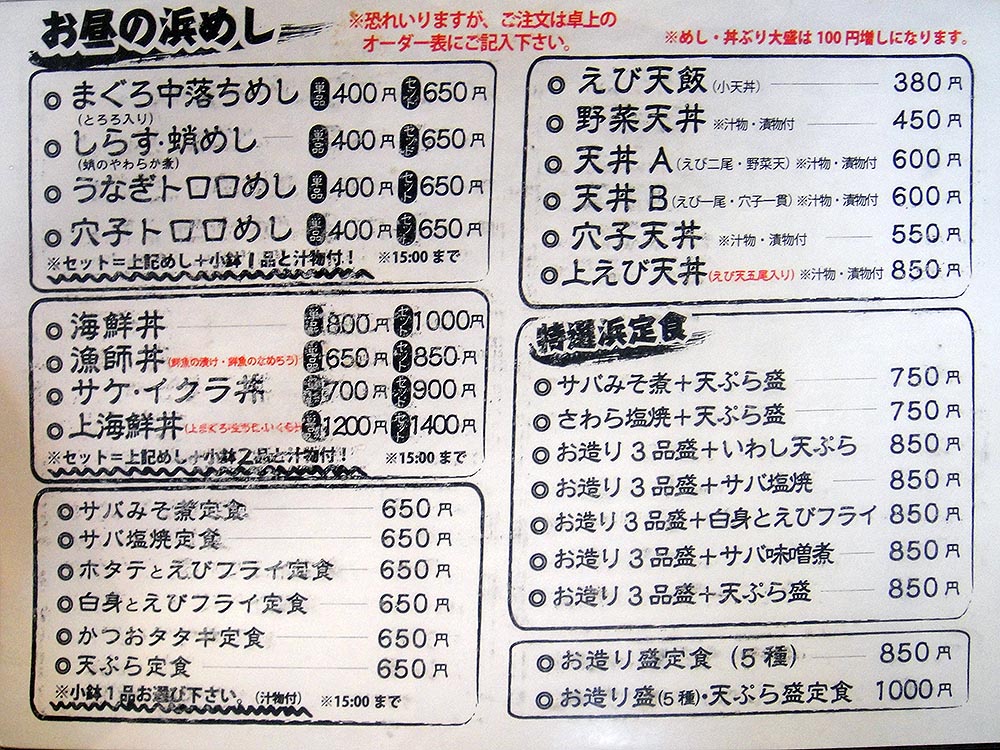 お昼の浜めし
※恐れいりますが、ご注文は卓上の
オーダー表にご記入下さい。
※めし・丼ぶり大盛は100円増しになります。
◎ まぐろ中落ちめし 単品 400円 セット 650円
(とろろ入り)
◎ しらす・蛸めし 単品 400円 セット 650円
(蛸のやわらか煮)
◎ うなぎトロロめし 単品 400円 セット 650円
◎ 穴子トロロめし 単品 400円 セット 650円
※セット=上記めし+小鉢1品と汁物付! ※15:00まで
◎ 海鮮丼 単品 800円 セット 1000円
◎ 漁師丼 単品 650円 セット 850円
◎ サケ・イクラ丼 単品 700円 セット 900円
◎ 上海鮮丼 単品 1200円 セット 1400円
※セット=上記めし+小鉢2品と汁物付! ※15:00まで
◎ サバみそ煮定食 650円
◎ サバ塩焼定食 650円
◎ ホタテとえびフライ定食 650円
◎ 白身とえびフライ定食 650円
◎ かつおタタキ定食 650円
◎ 天ぷら定食 650円
※小鉢1品お選び下さい。(汁物付) ※15:00まで
◎ えび天飯(小天丼) 380円
◎ 野菜天丼 ※汁物・漬物付 450円
◎ 天丼A(えび二尾・野菜天)※汁物・漬物付 600円
◎ 天丼B(えび一尾・穴子一貫)※汁物・漬物付 600円
◎ 穴子天丼 ※汁物・漬物付 550円
◎ 上えび天丼(えび天五尾入り)※汁物・漬物付 850円
特選浜定食
◎ サバみそ煮+天ぷら盛 750円
◎ さわら塩焼+天ぷら盛 750円
◎ お造り3品盛+いわし天ぷら 850円
◎ お造り3品盛+サバ塩焼 850円
◎ お造り3品盛+白身とえびフライ 850円
◎ お造り3品盛+サバ味噌煮 850円
◎ お造り3品盛+天ぷら盛 850円
◎ お造り盛定食(5種) 850円
◎ お造り盛(5種)・天ぷら盛定食 1000円